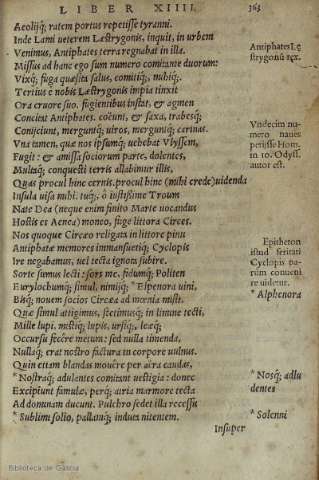 LIBER XIIII. 363
Aeolijq; ratem portus repetisse tyranni.
Inde Lami ueterem Læstrygonis, inquit, in urbem
Venimus, Antiphates terra regnabat in illa.
Missus ad hanc ego sum numero comitante duorum:
Vixq; fuga quæsita salus, comitiq;, mihiq;.
Tertius è nobis Læstrygonis impia tinxit
Ora cruore suo. fugientibus instat, & agmen
Concitat Antiphates. coëunt, & saxa, trabesq;
Conijciunt, merguntq; uiros, merguntq; carinas.
Vna tamen, quæ nos ipsumq; uehebat Vlyssem,
Fugit: & amissa sociorum parte, dolentes,
Multaq; conquesti terris allabimur illis,
Quas procul hinc cernis. procul hinc (mihi crede) uidenda
Insula uisa mihi. tuq;, ô iustissime Troum
Nate Dea (neque enim finito Marte uocandus
Hostis es Aenea) moneo, fuge littora Circes.
Nos quoque Circæo religata in littore pinu
Antiphatæ memores immansuetiq; Cyclopis
Ire negabamus, uel tecta ignota subire.
Sorte sumus lecti: sors me, fidumq; Politen
Eurylochumq; simul, nimijq; * Elpenora uini,
Bisq; nouem socios Circæa ad mœnia misit.
Quæ simul attigimus, stetimusq; in limine tecti,
Mille lupi, mistiq; lupis, ursiq;, leæq;
Occursu fecere metum: sed nulla timenda,
Nullaq; erat nostro factura in corpore uulnus.
Quin etiam blandas mouêre per aëra caudas,
* Nostraq; adulantes comitant uestigia: donec
Excipiunt famulæ, perq; atria marmore tecta
Ad dominam ducunt. Pulchro sedet illa recessu
* Sublimi solio, pallamq; induta nitentem.
Insuper
Antiphates Lę
strygonũ rex.
Vndecim nu-
mero naues
perijsse Hom.
in 10. Odyss.
autor est.
Epitheton
istud feritati
Cyclopis pa-
rùm conueni
re uidetur.
* Alphenora
* Nosq; adlu
dentes
* Solenni
Biblioteca de Galicia